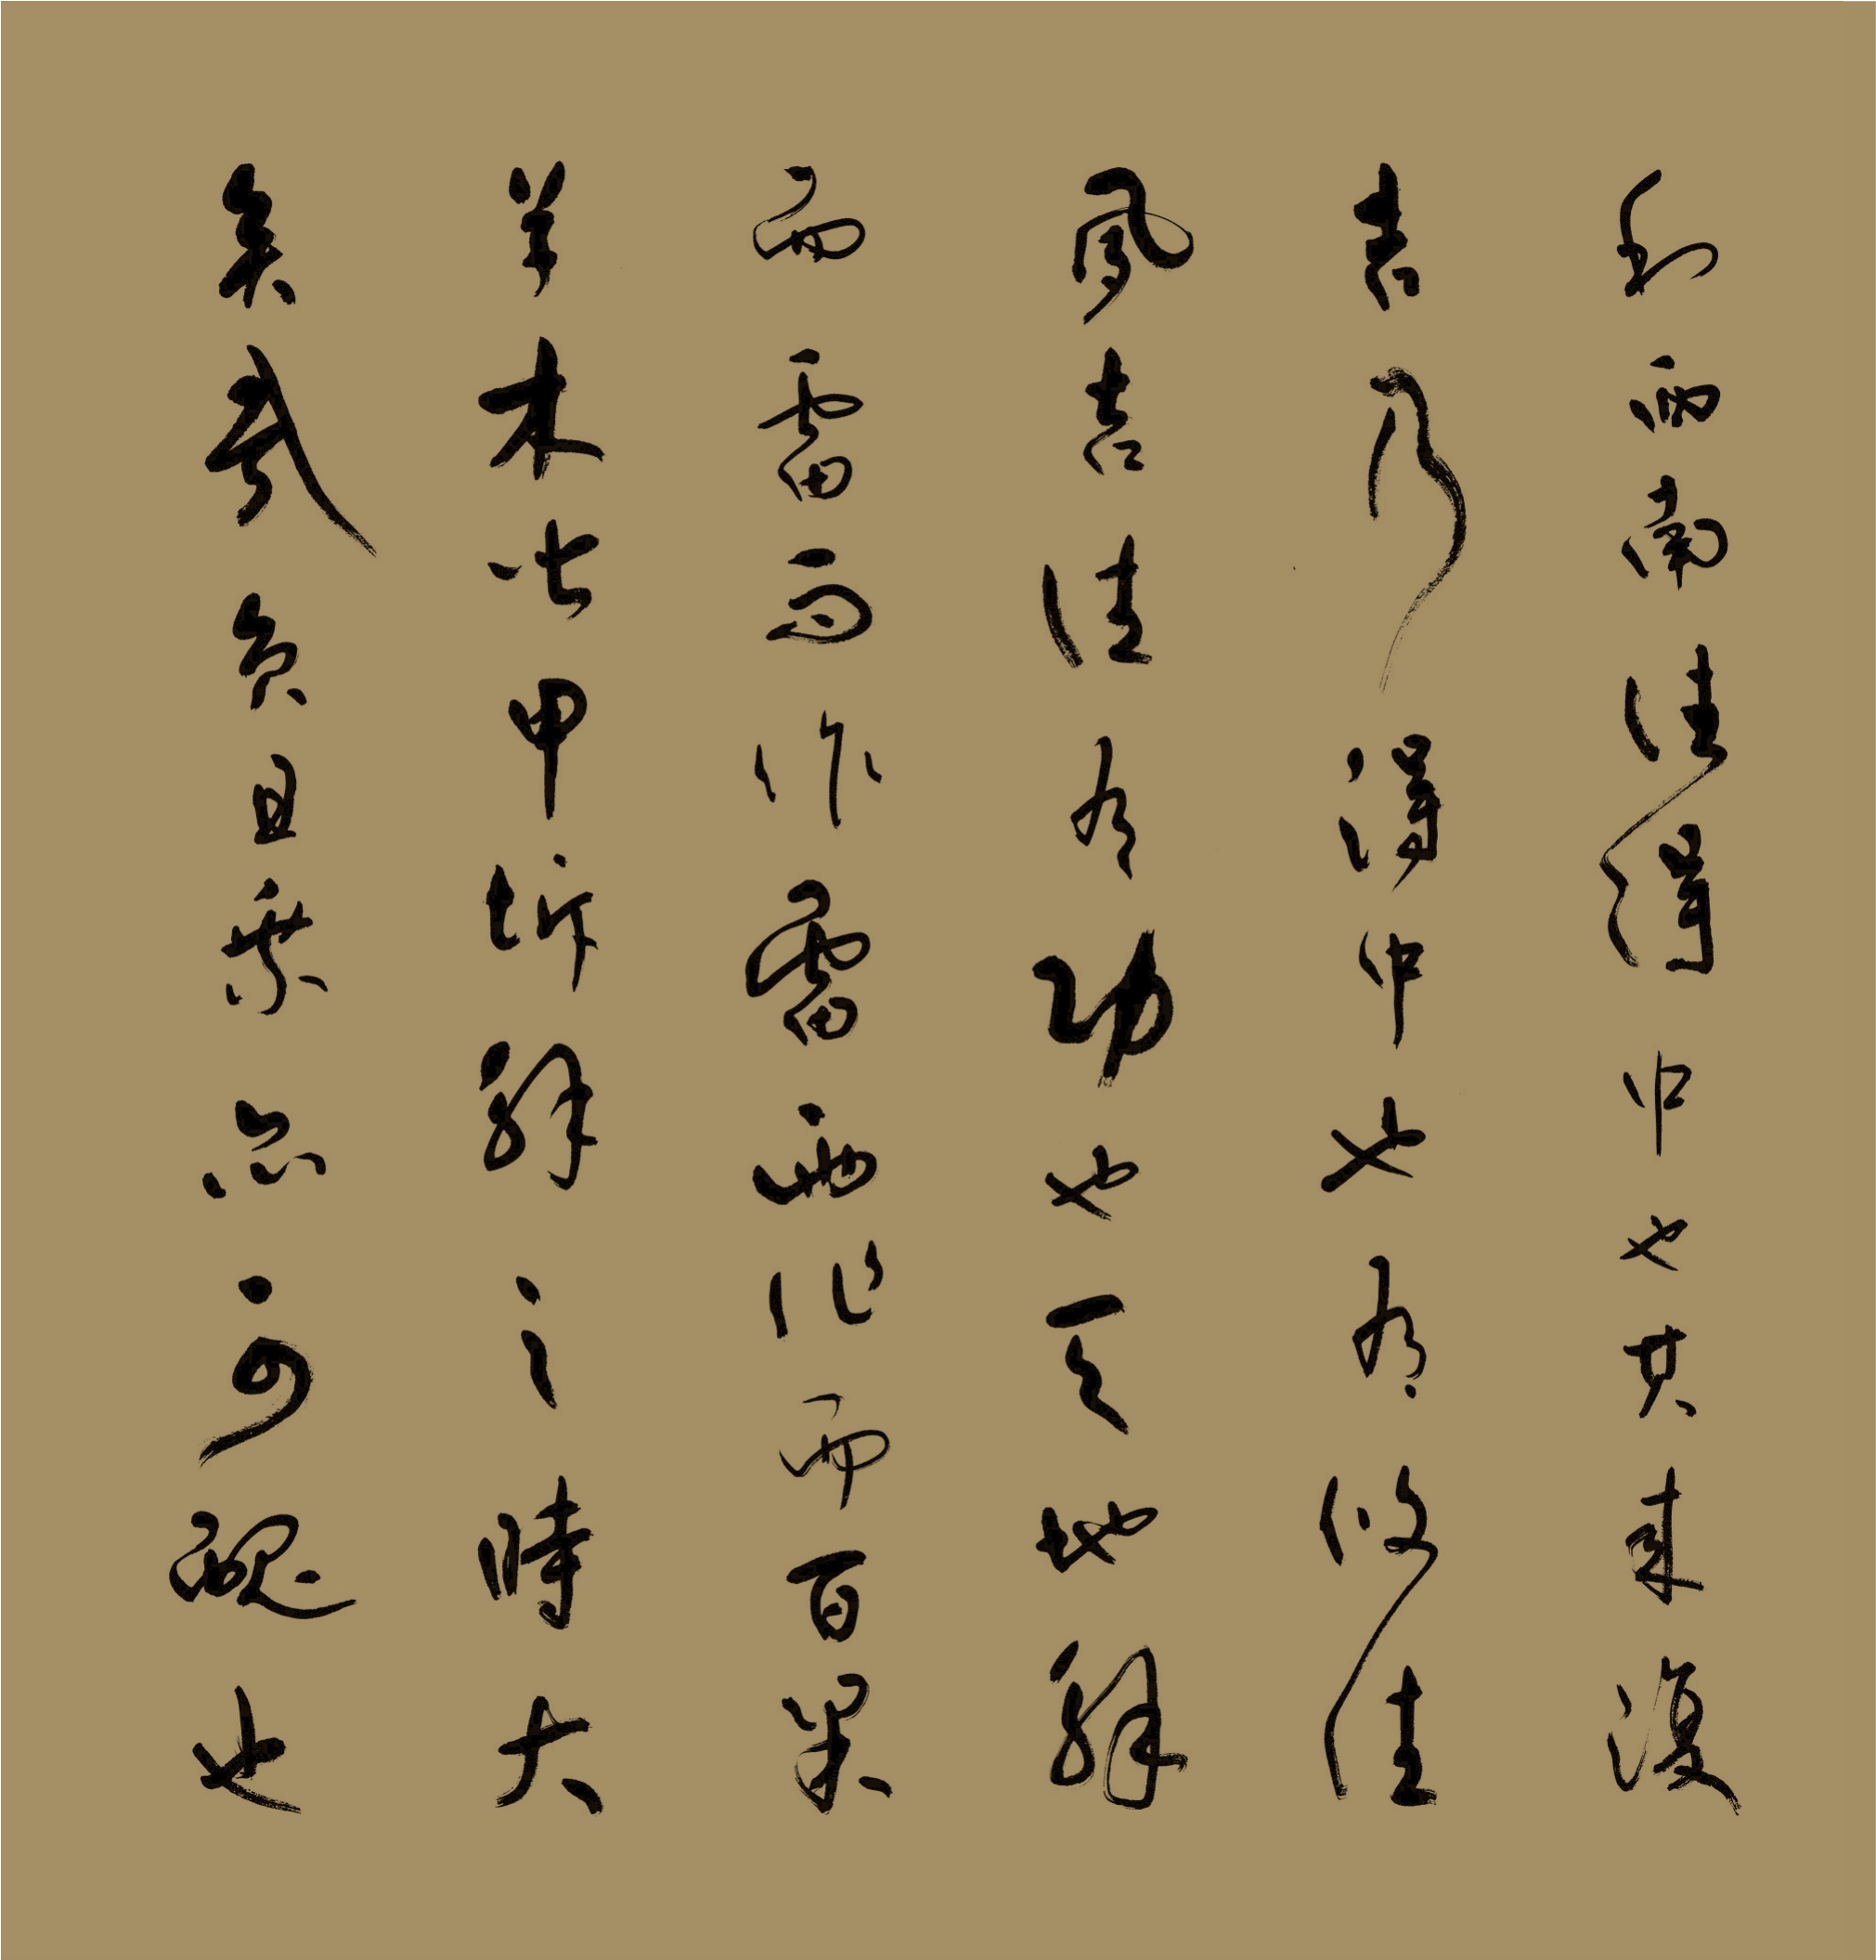 利西南往得中也其來復
吉乃得中也有攸往
夙吉往有功也天地解
而雷雨作雷雨作而百果
草木皆甲坼解之時大
矣哉負且乘亦可醜也